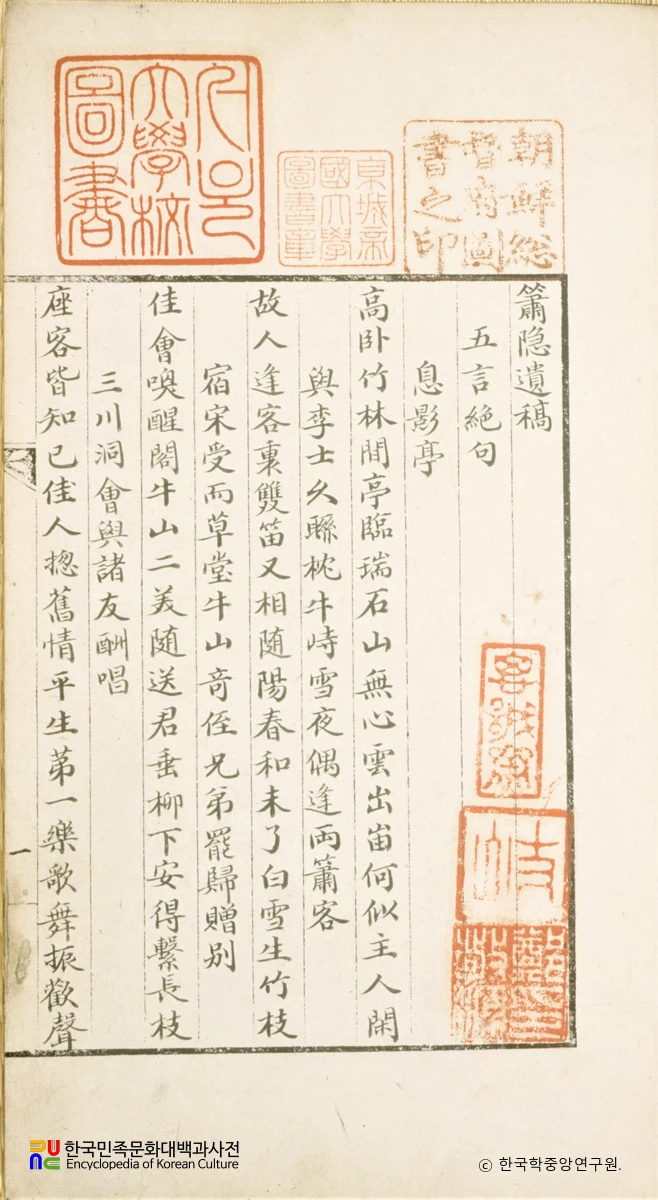 簫隐遺稿
五言絶句
息影亭
高卧竹林間亭臨瑞石山無心雲出畄何似主人閑
與李士久聮枕牛峙雪夜偶逢両簫客
故人逢客裏雙笛又相随陽春和未了白雪生竹枝
宿宋受而草堂牛山奇侄兄弟罷歸贈别
佳會喚醒閣牛山二美随送君垂柳下安得繫長枝
三川洞會與諸友酬唱
座客皆知已佳人揔舊情平生苐一樂歌舞振歡聲
一
朝鮮総
督府圖
書之印
京城帝
國大學
圖書章
大學校
圖書
한국민족문화대백과사전
Encyclopedia of Korean Culture
ⓒ 한국학중앙연구원.